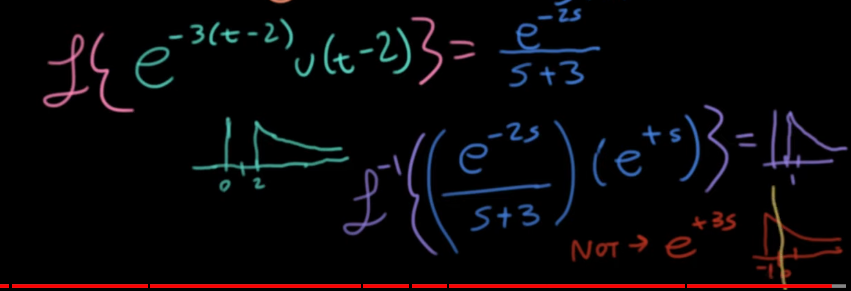 ℒ{ e^{-3(t-2)} u(t-2)} = e^{-2s} / (s+3)
0 2
ℒ^{-1}{ (e^{-2s} / (s+3)) (e^{+s}) } =
1
NOT → e^{+3s}
-1 0